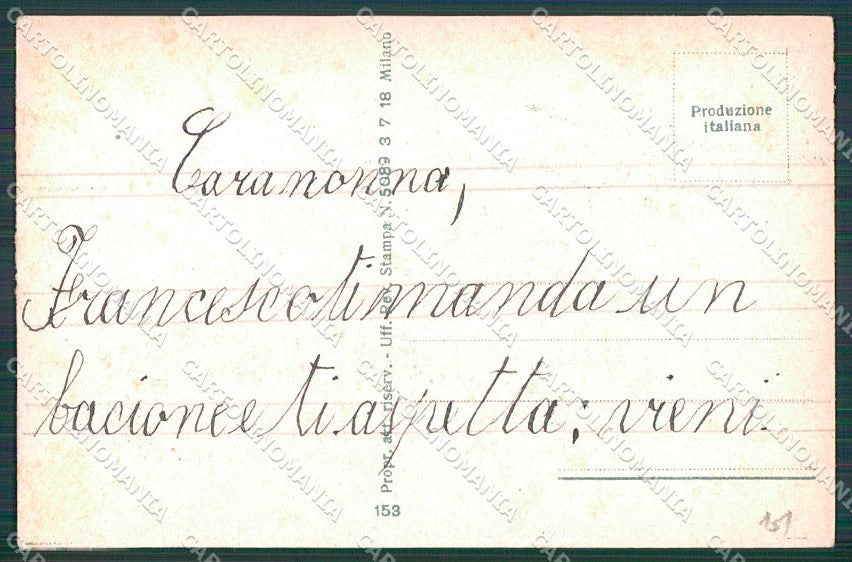 Produzione
italiana
Cara nonna,
Francesco ti manda un
bacione e ti aspetta; vieni.
Propr. art. riserv. - Uff. Rev. Stampa N. 5089 3 7 18 Milano
153
151
CARTOLINOMANIA